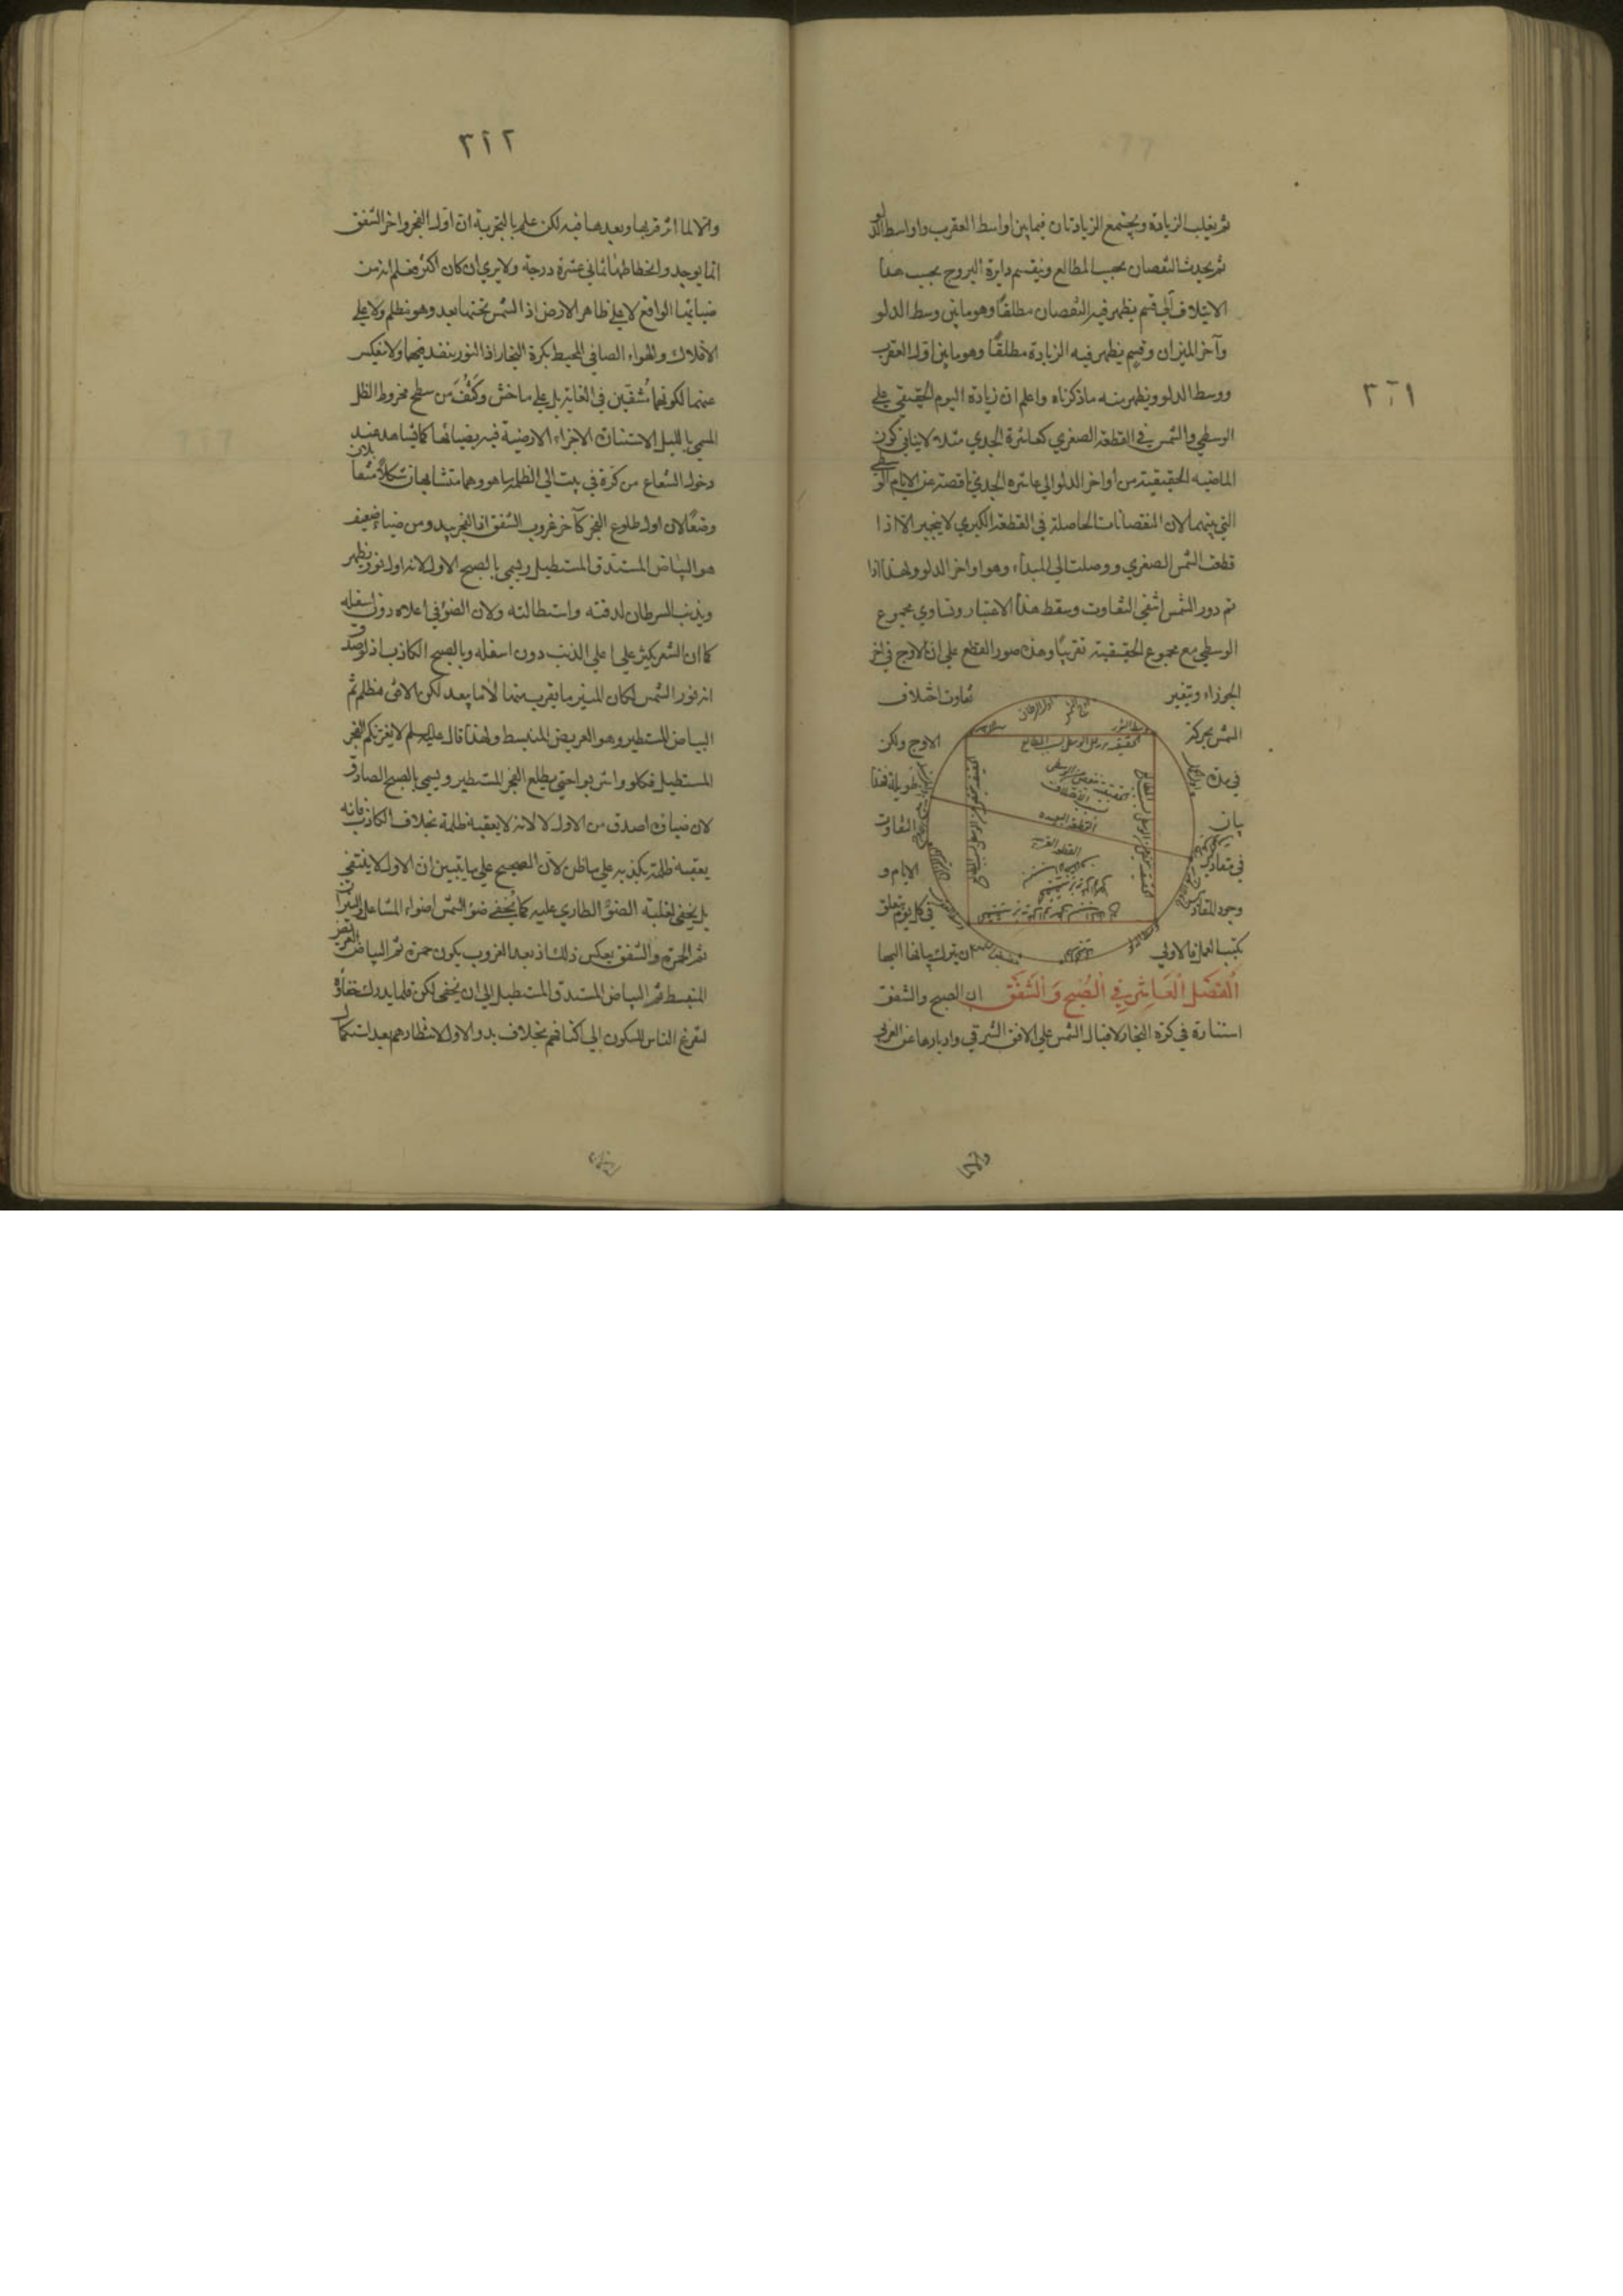 ٣٢١
ثم يغلب الزيادة ويجتمع الزيادتان فيما بين اواسط العقرب واواسط الدلو
ثم يحدث النقصان بحسب المطالع وينقسم دايرة البروج بحسب هذا
الاختلاف الى قسم يظهر فيه النقصان مطلقًا وهو ما بين وسط الدلو
وآخر الميزان وقسم يظهر فيه الزيادة مطلقًا وهو ما بين اول العقرب
ووسط الدلو ويظهر منه ما ذكرناه واعلم ان زيادة اليوم الحقيقي على
الوسطي والشمس في القطعة الصغري كعاشرة الجدي مثلا لا ينافي كون
الماضيه الحقيقية من اواخر الدلو الي عاشره الجدي ناقصة عن الايام الوسطي
التي بينهما لان النقصانات الحاصلة في القطعة الكبري لا ينجبر الا اذا
قطعت الشمس الصغري ووصلت الي المبداء وهو اواخر الدلو ولهذا اذا
تم دور الشمس انتفي التفاوت وسقط هذا الاعتبار وتساوي مجموع
الوسطي مع مجموع الحقيقية تقريبًا وهذه صور القطع علي ان الاوج في اخر
الجوزاء ويتغير تفاوت اختلاف
الشمس بحركة الاوج ولكن
في مدة طويلة فهذا
بيان التفاوت
في مقادير الايام و
وجود المقادير في كل يوم يتعلق
بكتب العمل فالاولي ان يترك بيانها اليها
القطعة البعيدة
الفَصْل الْعَاشِر في الْصُبْحِ وَ الْشَفَق ان الصبح والشفق
استنارة في كرة البخار لاقبال الشمس علي الافق الشرقي وادبارها عن الغربي
والا لما
٣٢٢
والا لما اثر قربها وبعدها فيه لكن علم بالتجربة ان اول الفجر واخر الشفق
انما يوجد وانحطاطها ثماني عشرة درجة ولا يري ان كان اكثر فعلم انه من
ضيائها الواقع لا علي ظاهر الارض اذ الشمس تحتها بعد وهو مظلم ولا علي
الافلاك والهواء الصافي المحيط بكرة البخار اذ النور ينفذ فيهما ولا ينعكس
عنهما لكونهما مُشفين في الغاية بل علي ما خشن وكَثُفَ من سطح مخروط الظل
المسمي بالليل لاستنارة الاجزاء الارضية فيه بضيائها كما يشاهد عند
دخول الشعاع من كوة في بيت الي الظلمة ما هو وهما متشابهان شكلًا متقابلان
وضعًا لان اول طلوع الفجر كآخر غروب الشفق اذ الفجر يبدو من ضياء ضعيف
هو البياض المستدق المستطيل ويسمي بالصبح الاول لانه اول نور يظهر
وبذنب السرطان لدقته واستطالته ولان الضوء في اعلاه دون اسفله
كما ان الشعر يكثر علي اعلي الذنب دون اسفله وبالصبح الكاذب اذ لو صدق
انه نور الشمس لكان المنير ما يقرب منها لا ما يبعد لكن الافق مظلم ثم
البياض المستطير وهو العريض المنبسط ولهذا قال لا يغرنكم الفجر
المستطيل فكلوا واشربوا حتي يطلع الفجر المستطير ويسمي بالصبح الصادق
لان ضياءه اصدق من الاول لا لانه لا يعقبه ظلمة بخلاف الكاذب فانه
يعقبه ظلمة يكذبه علي ما ظن لان الصحيح علي ما يتبين ان الاول لا ينتفي
بل يخفي لغلبة الضوء الطاري عليه كما يُخفي ضوء الشمس اضواء المشاعل والنيران
ثم الحمرة والشفق بعكس ذلك اذ بعد الغروب يكون حمرة ثم البياض العريض
المنبسط ثم البياض المستدق المستطيل الي ان يخفي لكن قلما يدرك خفاؤه
لتفرغ الناس للسكون الي اكنافهم بخلاف بدو الاول لانتظارهم بعد استكمال